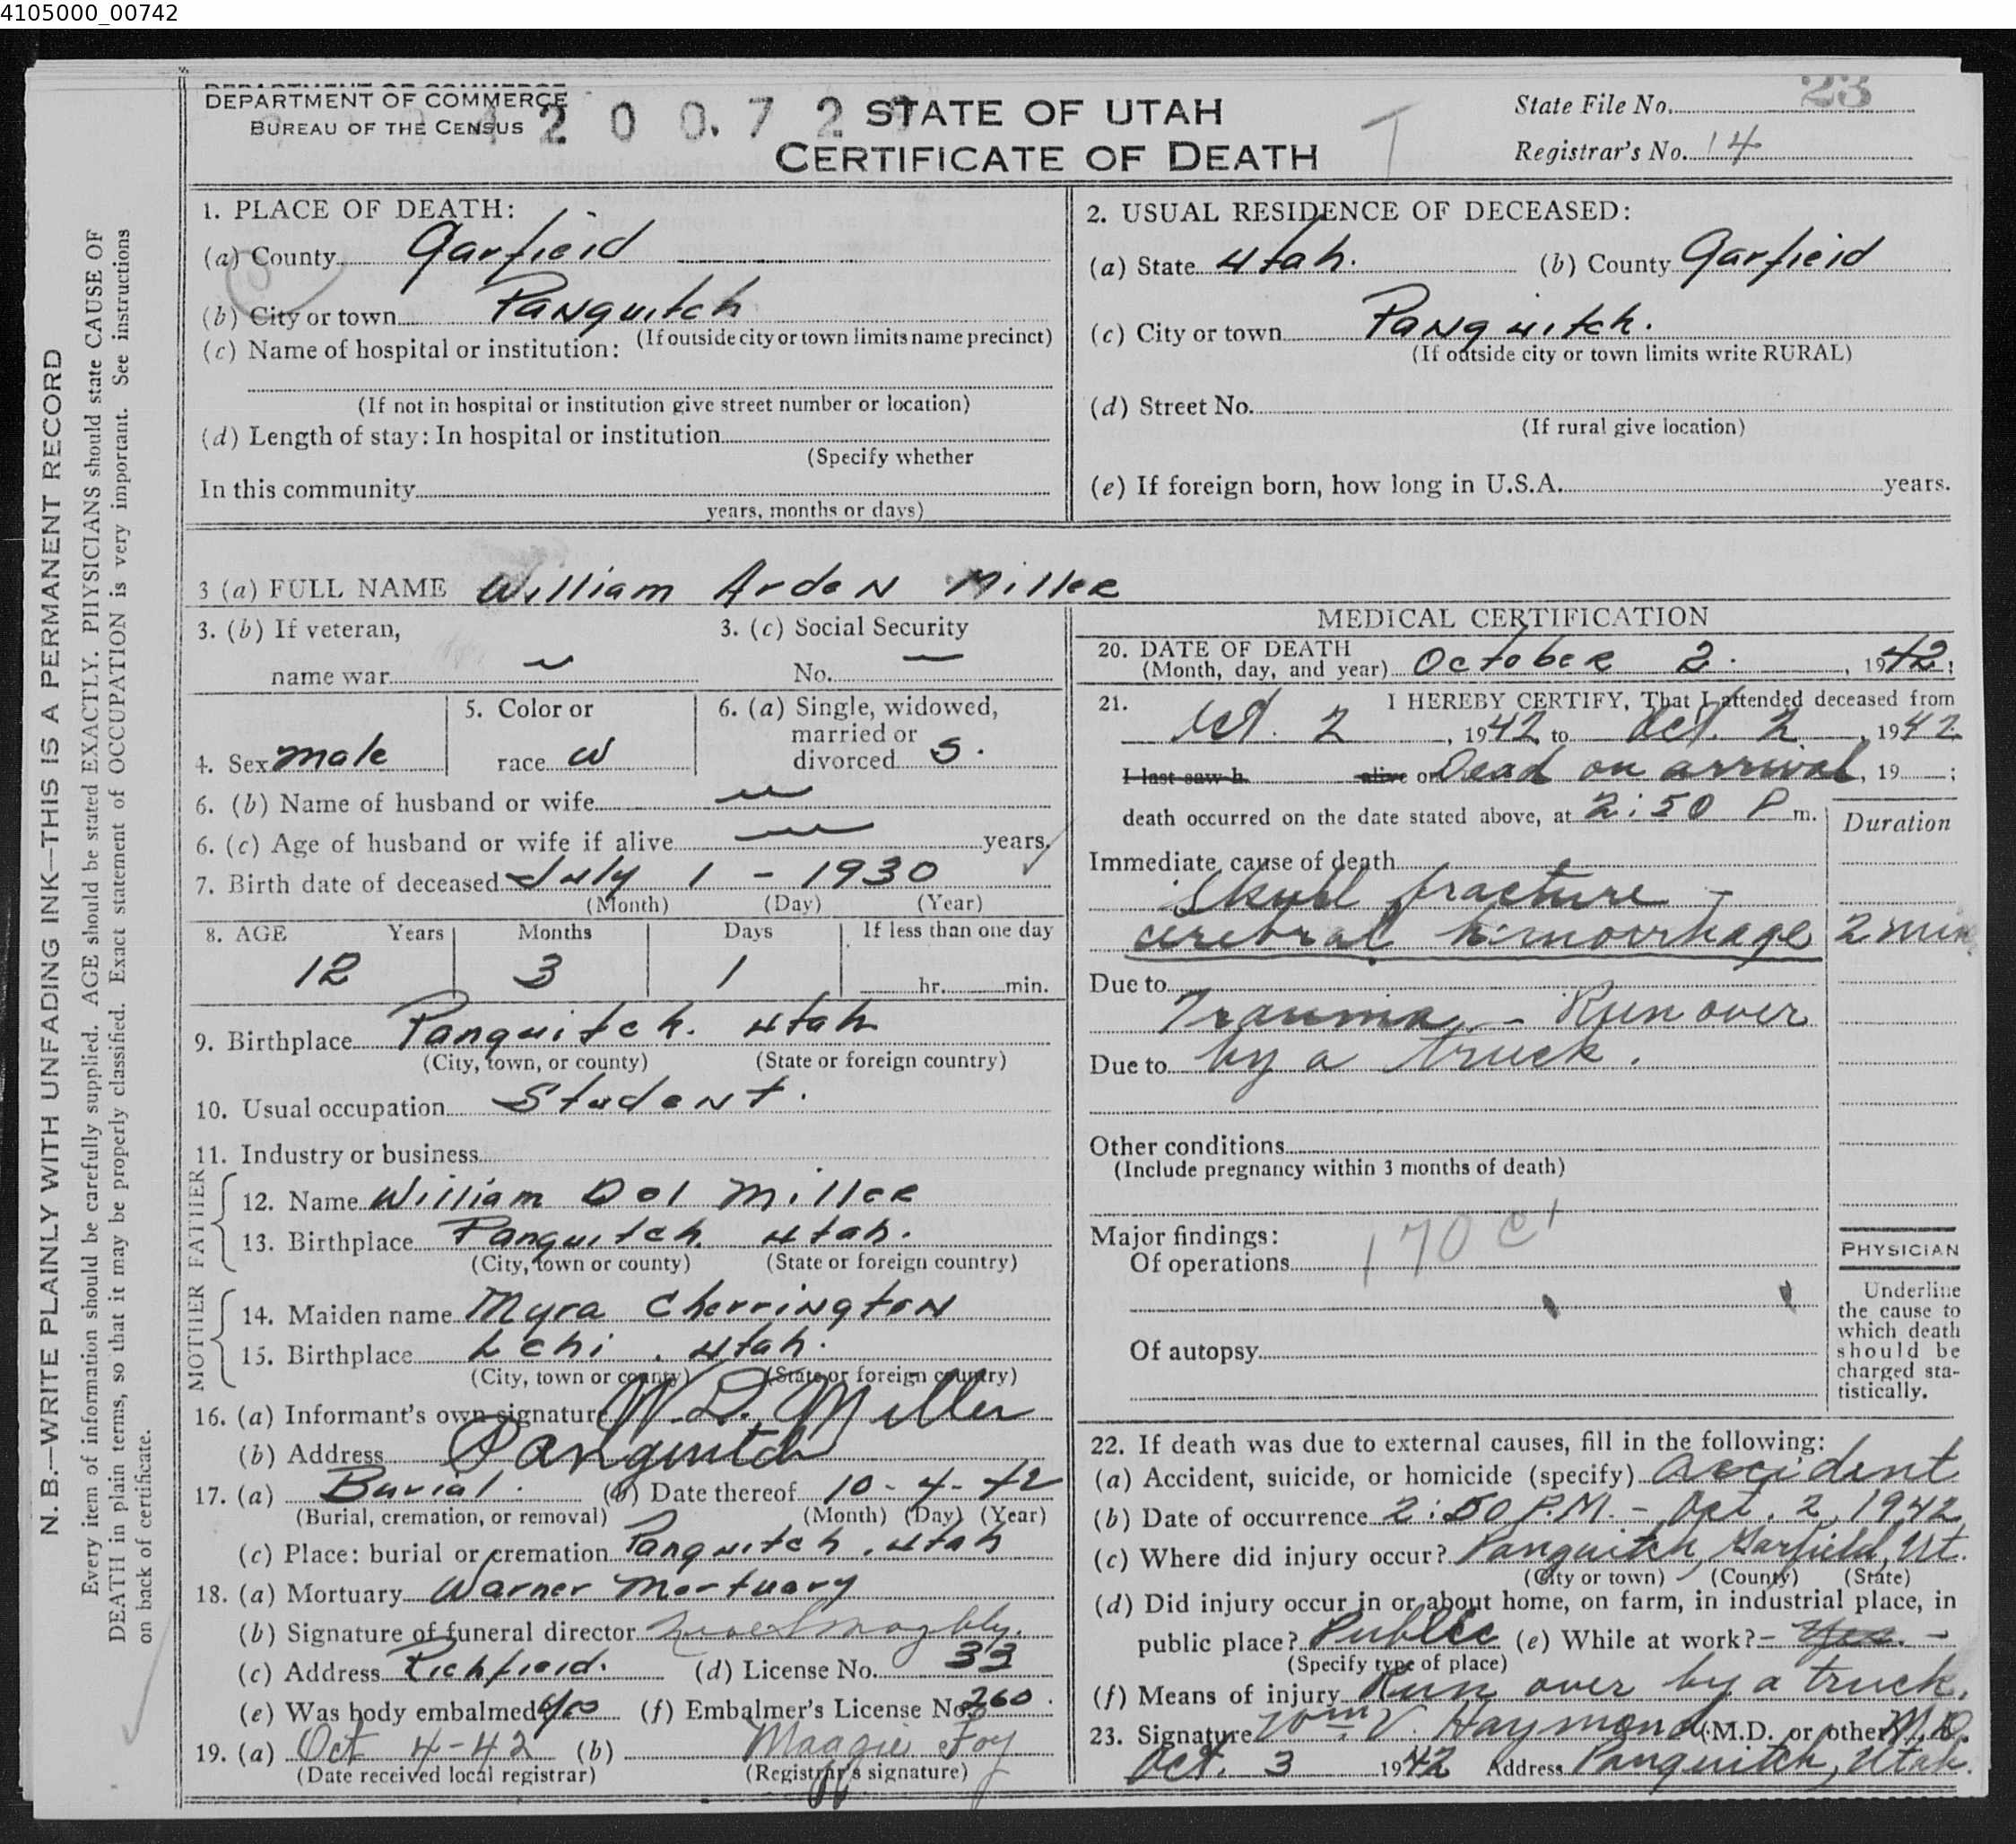 4105000_00742
DEPARTMENT OF COMMERCE
BUREAU OF THE CENSUS
4 2 0 0. 7 2
STATE OF UTAH
CERTIFICATE OF DEATH
T
State File No. 23
Registrar's No. 14
N. B.—WRITE PLAINLY WITH UNFADING INK—THIS IS A PERMANENT RECORD
Every item of information should be carefully supplied. AGE should be stated EXACTLY. PHYSICIANS should state CAUSE OF
DEATH in plain terms, so that it may be properly classified. Exact statement of OCCUPATION is very important. See instructions
on back of certificate.
1. PLACE OF DEATH:
(a) County Garfield
(b) City or town Panguitch
(If outside city or town limits name precinct)
(c) Name of hospital or institution:
(If not in hospital or institution give street number or location)
(d) Length of stay: In hospital or institution
(Specify whether
In this community
years, months or days)
2. USUAL RESIDENCE OF DECEASED:
(a) State Utah. (b) County Garfield
(c) City or town Panguitch.
(If outside city or town limits write RURAL)
(d) Street No.
(If rural give location)
(e) If foreign born, how long in U.S.A. years.
3 (a) FULL NAME William Arden Miller
3. (b) If veteran,
name war —
3. (c) Social Security
No. —
4. Sex male
5. Color or
race W
6. (a) Single, widowed,
married or
divorced S.
6. (b) Name of husband or wife —
6. (c) Age of husband or wife if alive — years.
7. Birth date of deceased July 1 - 1930
(Month) (Day) (Year)
8. AGE Years Months Days If less than one day
12 3 1 hr. min.
9. Birthplace Panguitch. Utah
(City, town, or county) (State or foreign country)
10. Usual occupation Student.
11. Industry or business
FATHER
12. Name William Del Miller
13. Birthplace Panguitch Utah.
(City, town or county) (State or foreign country)
MOTHER
14. Maiden name Myra Cherrington
15. Birthplace Lehi. Utah.
(City, town or county) (State or foreign country)
16. (a) Informant's own signature W. D. Miller
(b) Address Panguitch
17. (a) Burial. (b) Date thereof 10-4-42
(Burial, cremation, or removal) (Month) (Day) (Year)
(c) Place: burial or cremation Panguitch, Utah
18. (a) Mortuary Warner Mortuary
(b) Signature of funeral director
(c) Address Richfield. (d) License No. 33
(e) Was body embalmed yes (f) Embalmer's License No. 260.
19. (a) Oct 4-42 (b) Maggie Foy
(Date received local registrar) (Registrar's signature)
MEDICAL CERTIFICATION
20. DATE OF DEATH
(Month, day, and year) October 2. , 1942;
21. I HEREBY CERTIFY, That I attended deceased from
Oct. 2 , 1942 to Oct. 2 , 1942
I last saw h alive on Dead on arrival, 19 ;
death occurred on the date stated above, at 2:50 P m.
Duration
Immediate cause of death
Skull fracture -
cerebral himorrhage 2 min
Due to
Trauma - Run over
Due to by a truck.
Other conditions
(Include pregnancy within 3 months of death)
Major findings:
Of operations 170 c
Of autopsy
PHYSICIAN
Underline
the cause to
which death
should be
charged sta-
tistically.
22. If death was due to external causes, fill in the following:
(a) Accident, suicide, or homicide (specify) accident
(b) Date of occurrence 2:50 P.M. - Oct. 2, 1942
(c) Where did injury occur? Panguitch, Garfield, Ut.
(City or town) (County) (State)
(d) Did injury occur in or about home, on farm, in industrial place, in
public place? Public (e) While at work? - Yes. -
(Specify type of place)
(f) Means of injury Run over by a truck.
23. Signature Wm. V. Haymond (M.D. or other) M.D.
Oct. 3 1942 Address Panguitch, Utah.